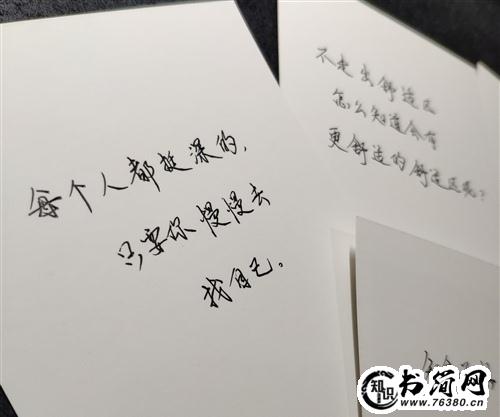 每个人都挺深的,
只要你慢慢去
找自己。
不走出舒适区
怎么知道会有
更舒适的舒适区呢?
知识
书简网
www.76380.cn